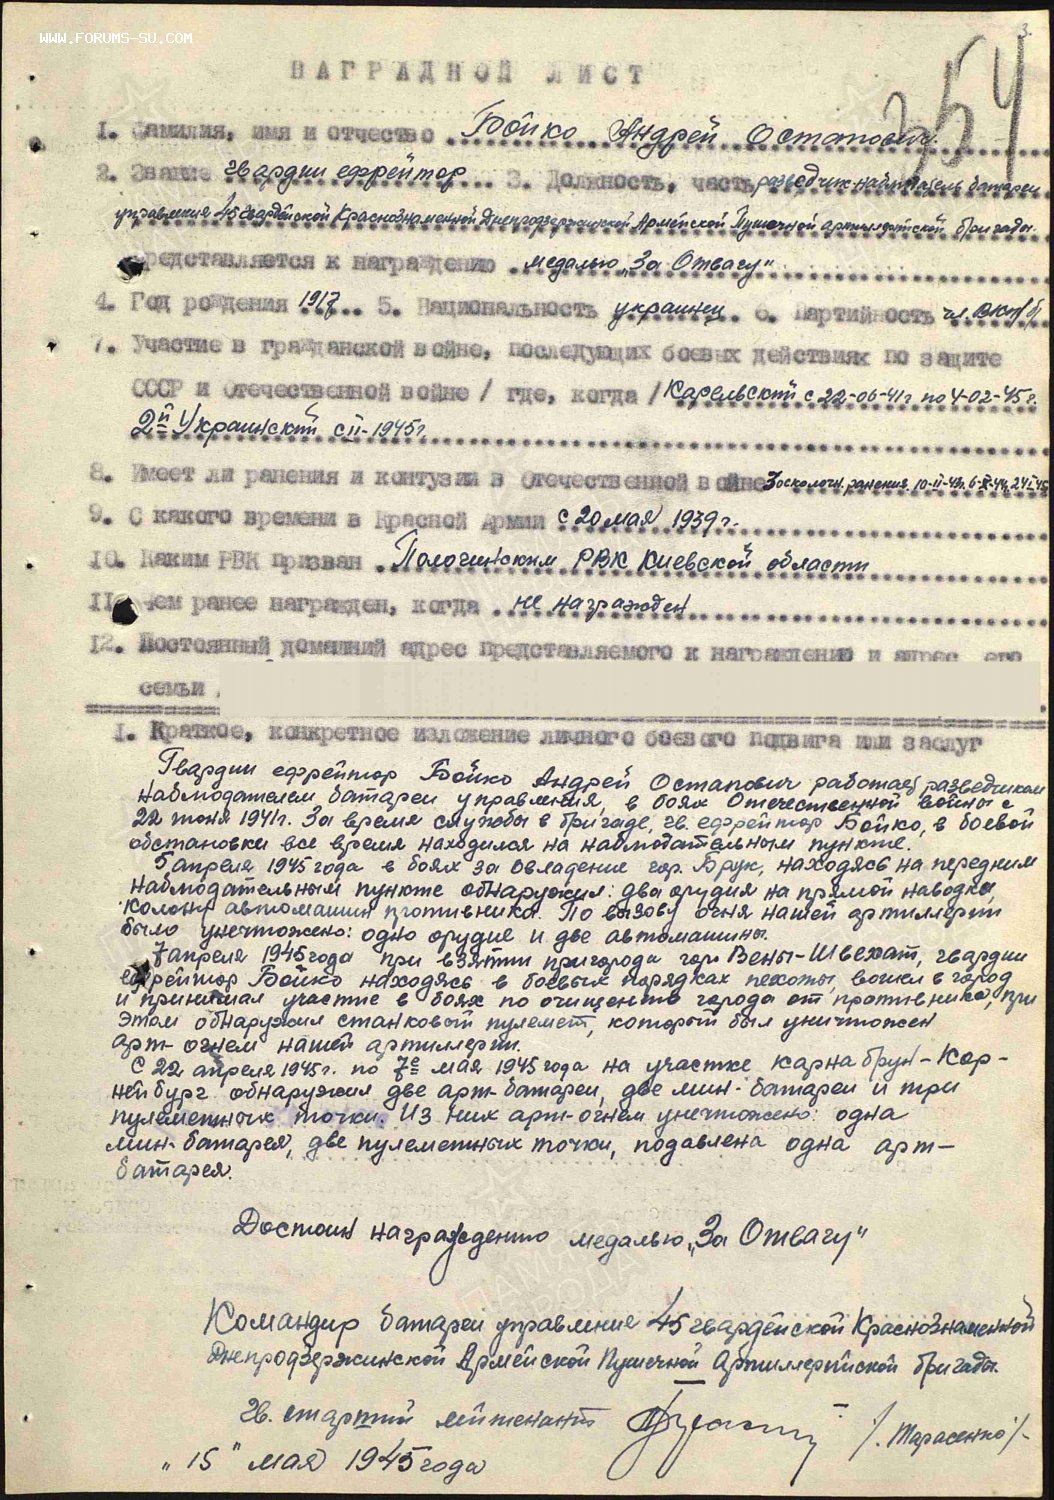 WWW.FORUMS-SU.COM
3.
354
НАГРАДНОЙ ЛИСТ
1. Фамилия, имя и отчество Бойко Андрей Остапович
2. Звание гвардии ефрейтор 3. Должность, часть разведчик наблюдатель батареи
управления 45 гвардейской Краснознаменной Днепродзержинской Армейской Пушечной артиллерийской бригады.
представляется к награждению медалью „За Отвагу"
4. Год рождения 1917 5. Национальность украинец 6. Партийность чл. ВКП/б/
7. Участие в гражданской войне, последующих боевых действиях по защите
СССР и Отечественной войне / где, когда / Карельский с 22-06-41г по 4-02-45г.
2й Украинский с II-1945г
8. Имеет ли ранения и контузии в Отечественной войне 3 осколочн. ранения.
9. С какого времени в Красной Армии с 20 мая 1939 г.
10. Каким РВК призван РВК Киевской области
11. Чем ранее награжден, когда не награжден
12. Постоянный домашний адрес представляемого к награждению и адрес его
семьи
1. Краткое, конкретное изложение личного боевого подвига или заслуг
Гвардии ефрейтор Бойко Андрей Остапович работает разведчиком
наблюдателем батареи управления, в боях Отечественной войны с
22 июня 1941г. За время службы в бригаде, гв. ефрейтор Бойко, в боевой
обстановке все время находился на наблюдательном пункте.
5 апреля 1945 года в боях за овладение гор. Брук, находясь на переднем
наблюдательном пункте обнаружил: два орудия на прямой наводке,
колону автомашин противника. По вызову огня нашей артиллерии
было уничтожено: одно орудие и две автомашины.
7 апреля 1945 года при взятии пригорода гор. Вены-Швехат, гвардии
ефрейтор Бойко находясь в боевых порядках пехоты, вошел в город
и принимал участие в боях по очищению города от противника, при
этом обнаружил станковый пулемет, который был уничтожен
арт-огнем нашей артиллерии.
С 22 апреля 1945г. по 7е мая 1945 года на участке Карнабрун-Кор-
нейбург обнаружил две арт-батареи, две мин-батареи и три
пулеметных точки. Из них арт-огнем уничтожено: одна
мин-батарея, две пулеметных точки, подавлена одна арт-
батарея.
Достоин награждению медалью „За Отвагу"
Командир батареи управления 45 гвардейской Краснознаменной
Днепродзержинской Армейской Пушечной Артиллерийской бригады.
Гв. старший лейтенант /Тарасенко/
„15" мая 1945 года